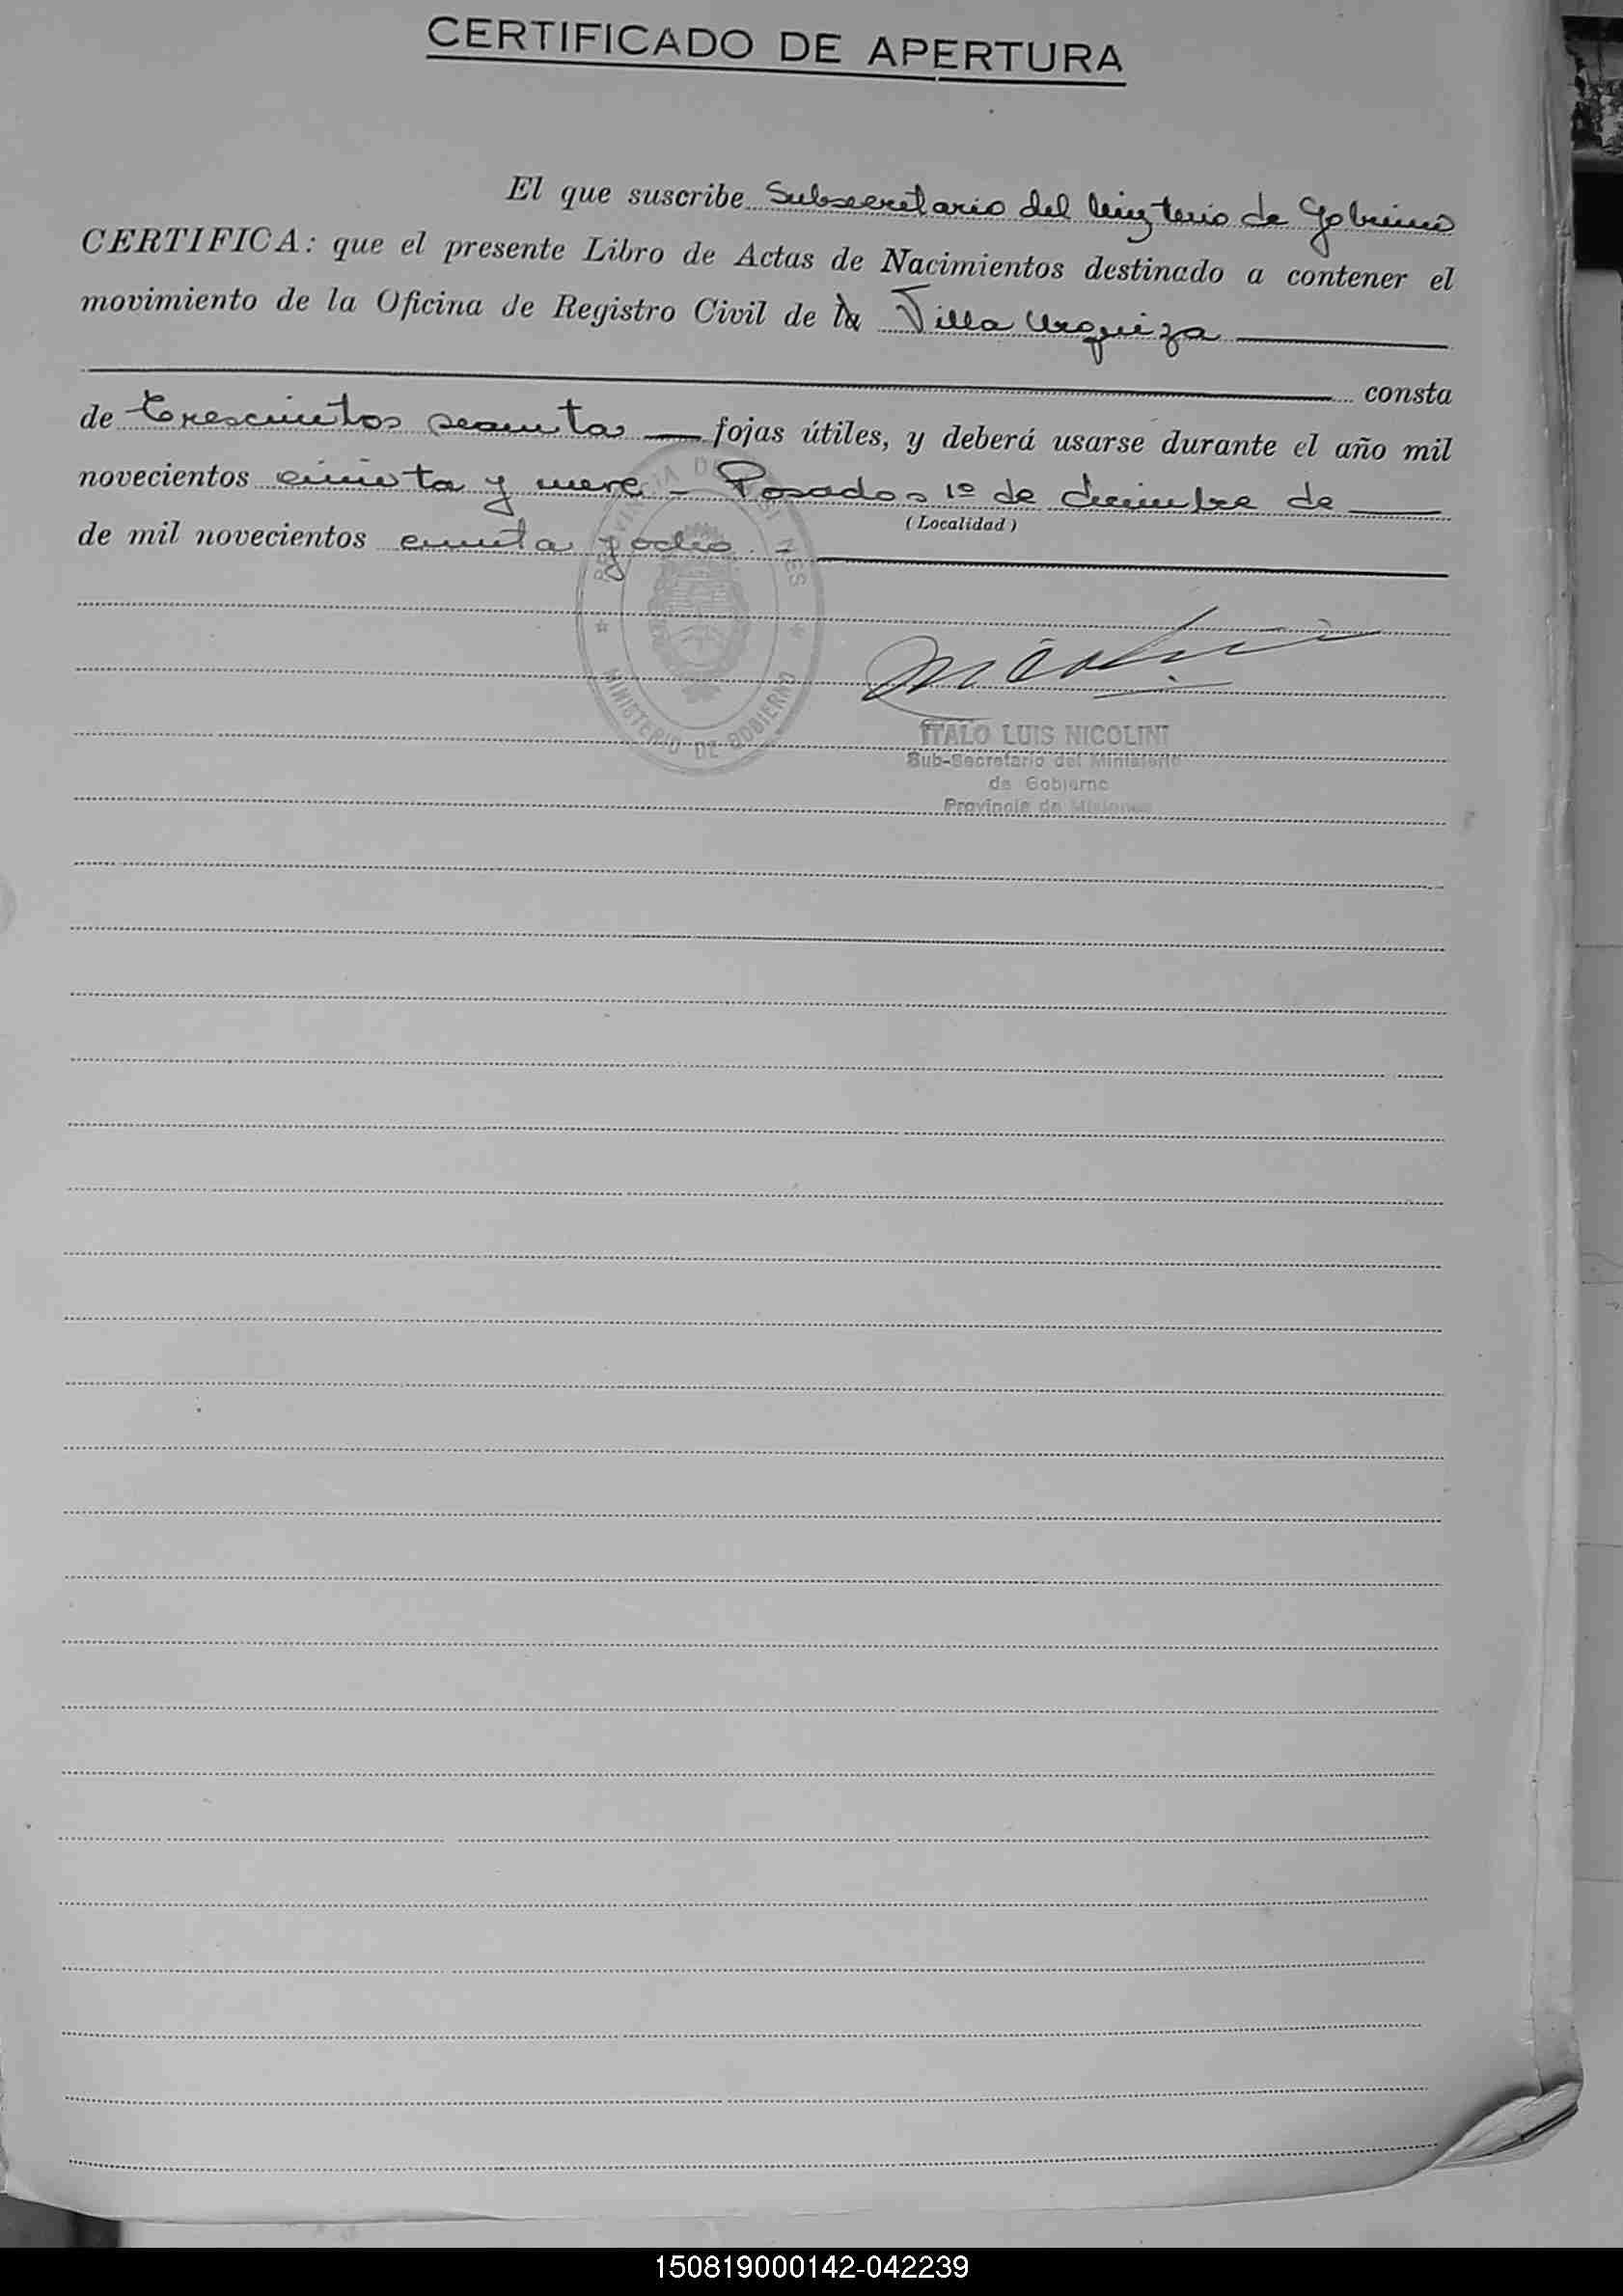 CERTIFICADO DE APERTURA
El que suscribe Subsecretario del Ministerio de Gobierno
CERTIFICA: que el presente Libro de Actas de Nacimientos destinado a contener el
movimiento de la Oficina de Registro Civil de la Villa Urquiza
consta
de Trescientos sesenta fojas útiles, y deberá usarse durante el año mil
novecientos cincuenta y nueve - Posadas 1º de diciembre de
(Localidad)
de mil novecientos cincuenta y ocho. -
PROVINCIA DE MISIONES
MINISTERIO DE GOBIERNO
ITALO LUIS NICOLINI
Sub-Secretario del Ministerio
de Gobierno
Provincia de Misiones
150819000142-042239